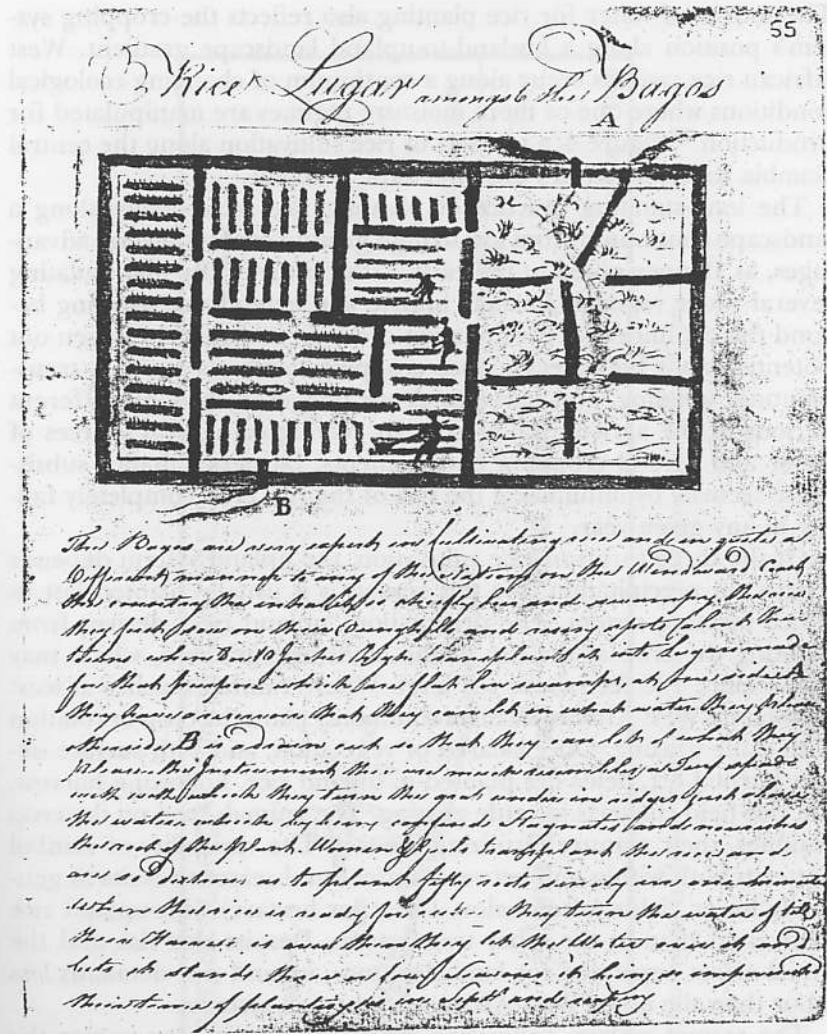 55
Rice Lugar arranged by Bagos
A
B
The Bagos are very expert in Cultivating rice and in quite a
Different manner to any of the Nations on the Windward Coast
The country they inhabit is chiefly loam and swampy. The rice
they first sow on their dunghills and rising spots about their
towns when 8 or 10 Inches high transplant it into Lugars made
for that purpose which are flat low swamps, at one side A
they have a reservoir that they can let in what water they please
other side B is a drain out so that they can let off what they
please. The Instrument they use much resembles a Turf spade
with which they turn the grass under in ridges just above
the water which by being confined Stagnates and nourishes
the root of the plant. Women & Girls transplant the rice and
are so dextrous as to plant fifty roots singly in one minute
when the rice is ready for cutting they turn the water off till
their Harvest is over then they let the Water over it and
lets it stands three or four Seasons it being so impoverished
Their time of planting is in Septr and reaping